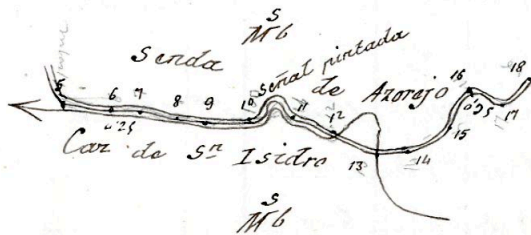 S
M b
Senda Señal pintada de Azorajo
5 6 7 8 9 10 11 12 13 14 15 16 17 18
0'25
0'35
Car de Sn Isidro
S
M b